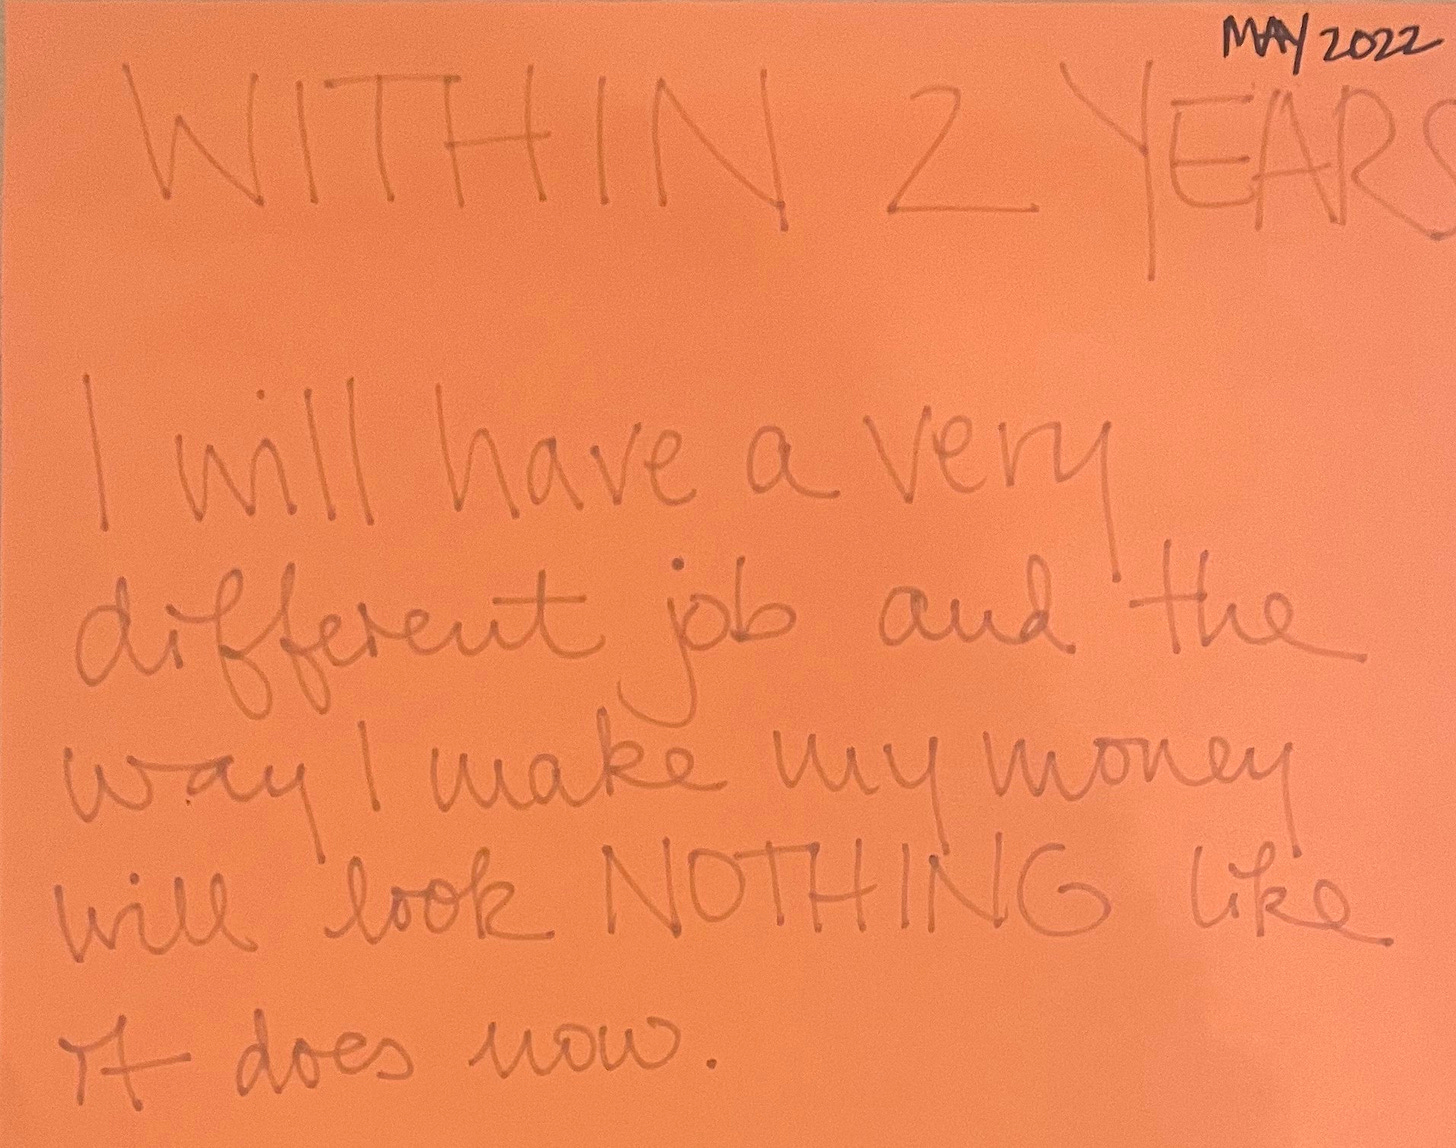 MAY 2022
WITHIN 2 YEARS
I will have a very
different job and the
way I make my money
will look NOTHING like
it does now.